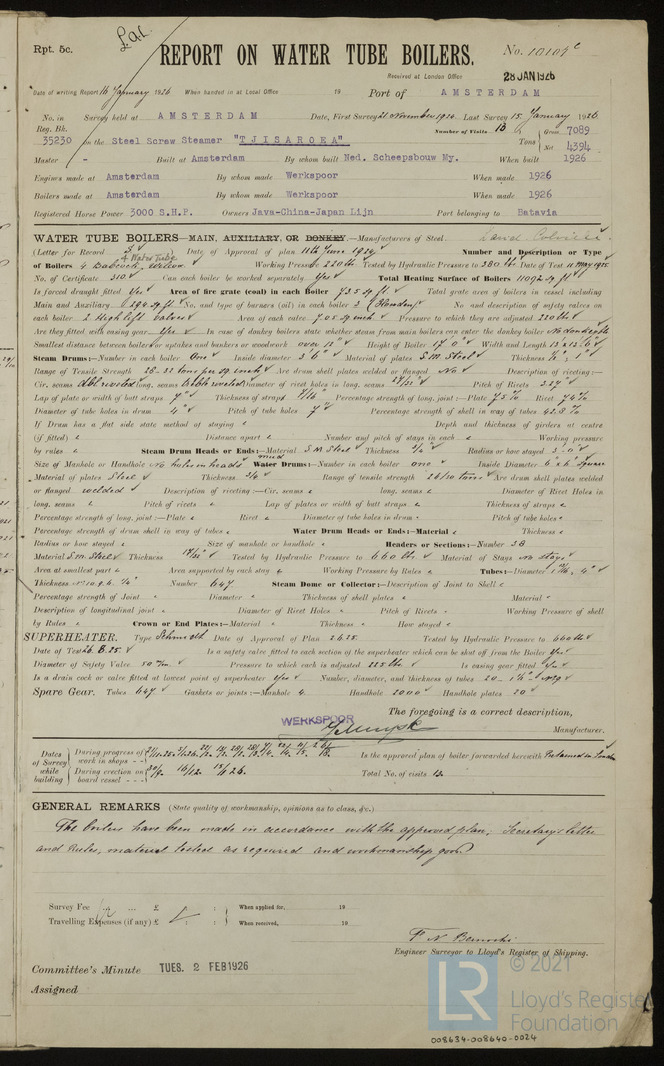 Rpt. 5c.
REPORT ON WATER TUBE BOILERS.
No. 10109c
Received at London Office 28 JAN 1926
Date of writing Report 16 January 1926 When handed in at Local Office 19 Port of AMSTERDAM
No. in Reg. Bk. Survey held at AMSTERDAM Date, First Survey 21 November 1924 Last Survey 15 January 1926
Number of Visits 13
35230 on the Steel Screw Steamer "TJISAROEA" Tons Gross 7089 Net 4394
Master Built at Amsterdam By whom built Ned. Scheepsbouw My. When built 1926
Engines made at Amsterdam By whom made Werkspoor When made 1926
Boilers made at Amsterdam By whom made Werkspoor When made 1926
Registered Horse Power 3000 S.H.P. Owners Java-China-Japan Lijn Port belonging to Batavia
WATER TUBE BOILERS—MAIN, AUXILIARY, OR DONKEY.—Manufacturers of Steel David Colville
(Letter for Record S) Date of Approval of plan 11th June 1924 Number and Description or Type
of Boilers 4 Babcock Wilcox Water Tube Working Pressure 220 lbs Tested by Hydraulic Pressure to 380 lbs Date of Test 11 May 1925
No. of Certificate 310 Can each boiler be worked separately Yes Total Heating Surface of Boilers 11092 sq ft
Is forced draught fitted Yes Area of fire grate (coal) in each Boiler 73.5 sq ft Total grate area of boilers in vessel including
Main and Auxiliary 294 sq ft No. and type of burners (oil) in each boiler 3 No and description of safety valves on
each boiler 2 High lift valves Area of each valve 7.05 sq inch Pressure to which they are adjusted 220 lbs
Are they fitted with easing gear Yes In case of donkey boilers state whether steam from main boilers can enter the donkey boiler No donkey blr
Smallest distance between boilers or uptakes and bunkers or woodwork over 12" Height of Boiler 17' 0" Width and Length 13' x 12' 6"
Steam Drums:—Number in each boiler One Inside diameter 3' 6" Material of plates S.M. Steel Thickness
Range of Tensile Strength 26-31 tons per sq inch Are drum shell plates welded or flanged No Description of riveting:—
Cir. seams dbl riveted long. seams Diameter of rivet holes in long. seams Pitch of Rivets
Lap of plate or width of butt straps Thickness of straps Percentage strength of long. joint:—Plate 75% Rivet 74%
Diameter of tube holes in drum 4" Pitch of tube holes 7" Percentage strength of shell in way of tubes 42.8%
If Drum has a flat side state method of staying Depth and thickness of girders at centre
(if fitted) Distance apart Number and pitch of stays in each Working pressure
by rules Steam Drum Heads or Ends:—Material S.M. Steel Thickness 3/4" Radius or how stayed 3'-0"
Size of Manhole or Handhole No holes in heads Water Drums:—Number in each boiler one Inside Diameter 6" x 6" square
Material of plates Steel Thickness 3/4" Range of tensile strength 26/30 tons Are drum shell plates welded
or flanged welded Description of riveting:—Cir. seams long. seams Diameter of Rivet Holes in
long. seams Pitch of rivets Lap of plates or width of butt straps Thickness of straps
Percentage strength of long. joint:—Plate Rivet Diameter of tube holes in drum Pitch of tube holes
Percentage strength of drum shell in way of tubes Water Drum Heads or Ends:—Material Thickness
Radius or how stayed Size of manhole or handhole Headers or Sections:—Number 38
Material S.M. Steel Thickness Tested by Hydraulic Pressure to 660 lbs Material of Stays No stays
Area at smallest part Area supported by each stay Working Pressure by Rules Tubes:—Diameter 4"
Thickness Number 647 Steam Dome or Collector:—Description of Joint to Shell
Percentage strength of Joint Diameter Thickness of shell plates Material
Description of longitudinal joint Diameter of Rivet Holes Pitch of Rivets Working Pressure of shell
by Rules Crown or End Plates:—Material Thickness How stayed
SUPERHEATER. Type Schmidt Date of Approval of Plan 2.6.25 Tested by Hydraulic Pressure to 660 lbs
Date of Test 26.8.25 Is a safety valve fitted to each section of the superheater which can be shut off from the Boiler Yes
Diameter of Safety Valve 50 m/m Pressure to which each is adjusted 225 lbs Is easing gear fitted Yes
Is a drain cock or valve fitted at lowest point of superheater Yes Number, diameter, and thickness of tubes
Spare Gear. Tubes 647 Gaskets or joints:—Manhole 4 Handhole 2000 Handhole plates 20
The foregoing is a correct description,
WERKSPOOR
Manufacturer.
Dates of Survey while building
During progress of work in shops - -
Is the approved plan of boiler forwarded herewith Retained in London
During erection on board vessel - - -
Total No. of visits 13
GENERAL REMARKS (State quality of workmanship, opinions as to class, &c.)
The boilers have been made in accordance with the approved plan, Secretary's letter
and Rules, material tested as required and workmanship good
Survey Fee ... ... £ : : When applied for, 19
Travelling Expenses (if any) £ : : When received, 19
Engineer Surveyor to Lloyd's Register of Shipping.
Committee's Minute TUES. 2 FEB 1926
Assigned
© 2021
LR
Lloyd's Register
Foundation
008634-008640-0024